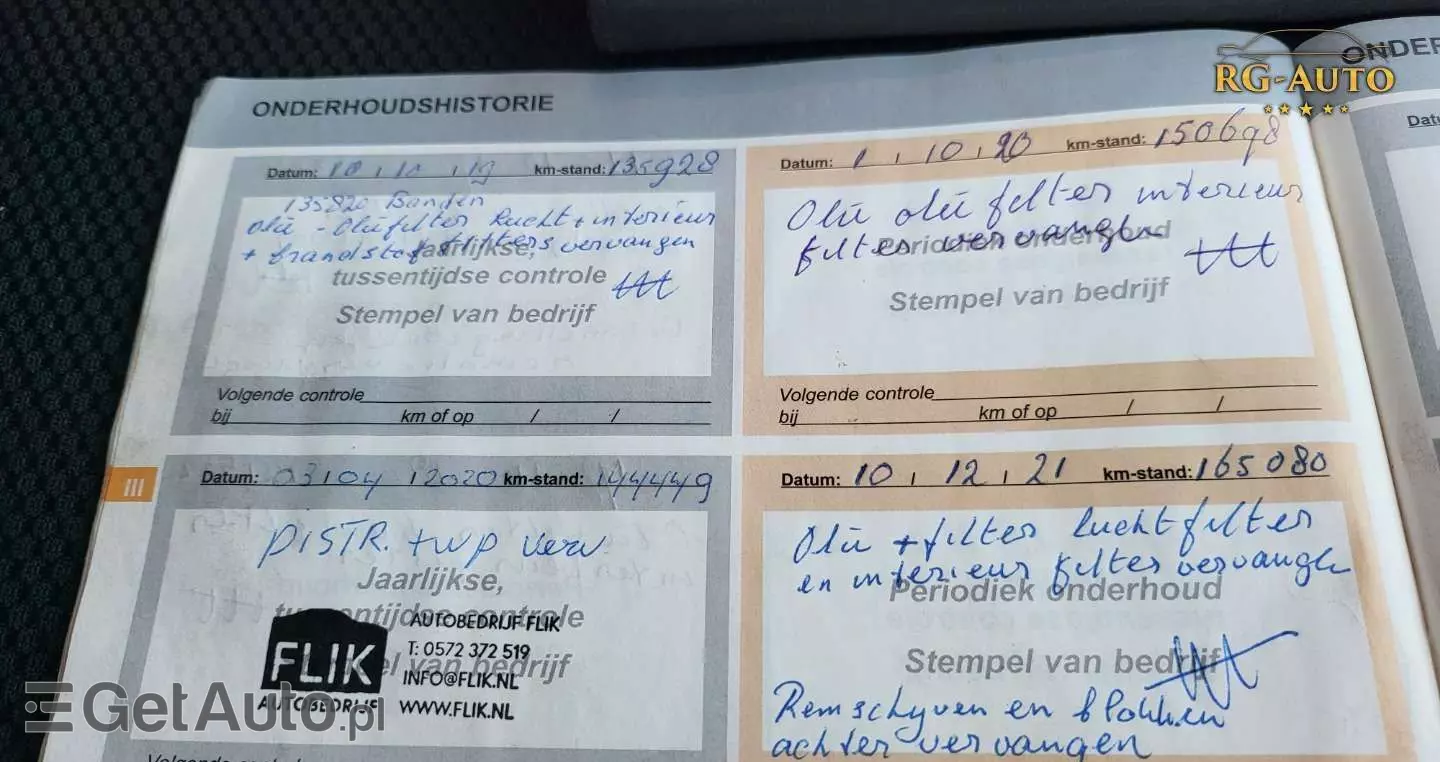 RG-AUTO
ONDERHOUDSHISTORIE
ONDER
Datum: 10 / 11 / 19 km-stand: 135928
135820 Banden
olie - oliefilter lucht + interieur
+ brandstoffilters vervangen
Jaarlijkse,
tussentijdse controle
Stempel van bedrijf
Volgende controle
bij km of op / /
Datum: 1 / 10 / 20 km-stand: 150698
Olie oliefilter interieur
filter vervangen
Periodiek onderhoud
Stempel van bedrijf
Volgende controle
bij km of op / /
III
Datum: 03 / 04 / 2020 km-stand: 144449
DISTR. + WP verv
Jaarlijkse,
tussentijdse controle
Stempel van bedrijf
FLIK
AUTOBEDRIJF
AUTOBEDRIJF FLIK
T: 0572 372 519
INFO@FLIK.NL
WWW.FLIK.NL
Volgende controle
Datum: 10 / 12 / 21 km-stand: 165080
Olie + filter luchtfilter
en interieur filter vervangen
Periodiek onderhoud
Stempel van bedrijf
Remschyven en blokken
achter vervangen
Datu
GetAuto.pl